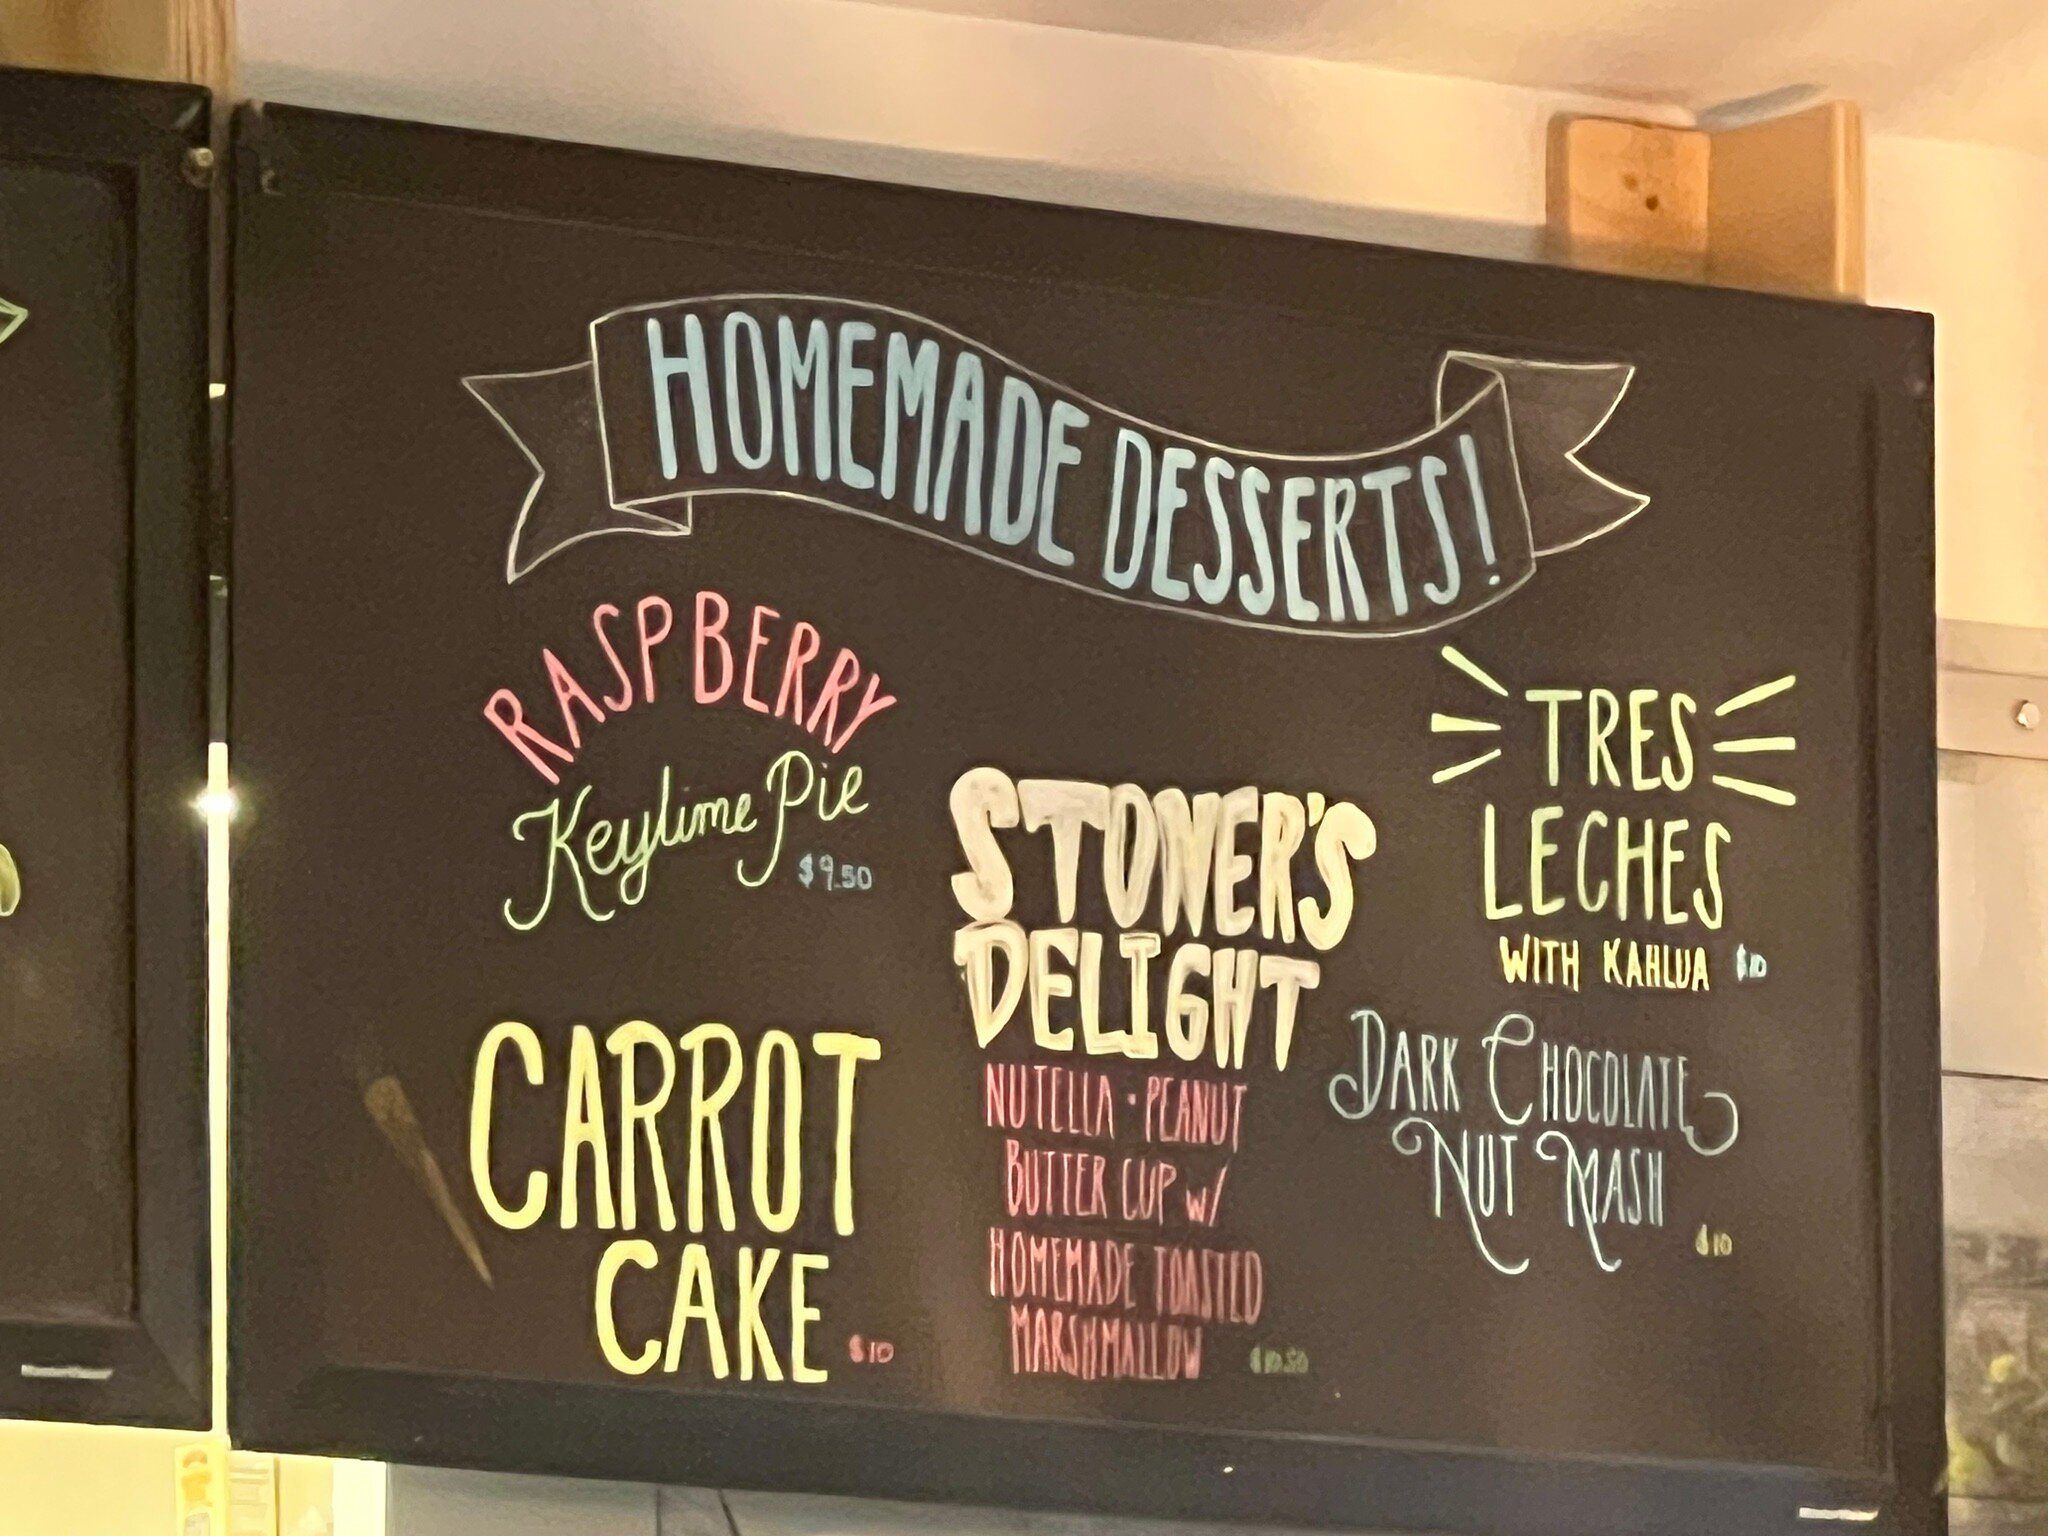 HOMEMADE DESSERTS!
RASPBERRY
Keylime Pie
$9.50
CARROT
CAKE $10
STONER'S
DELIGHT
NUTELLA · PEANUT
BUTTER CUP W/
HOMEMADE TOASTED
MARSHMALLOW $10.50
TRES
LECHES
WITH KAHLUA $10
DARK CHOCOLATE
NUT MASH
$10